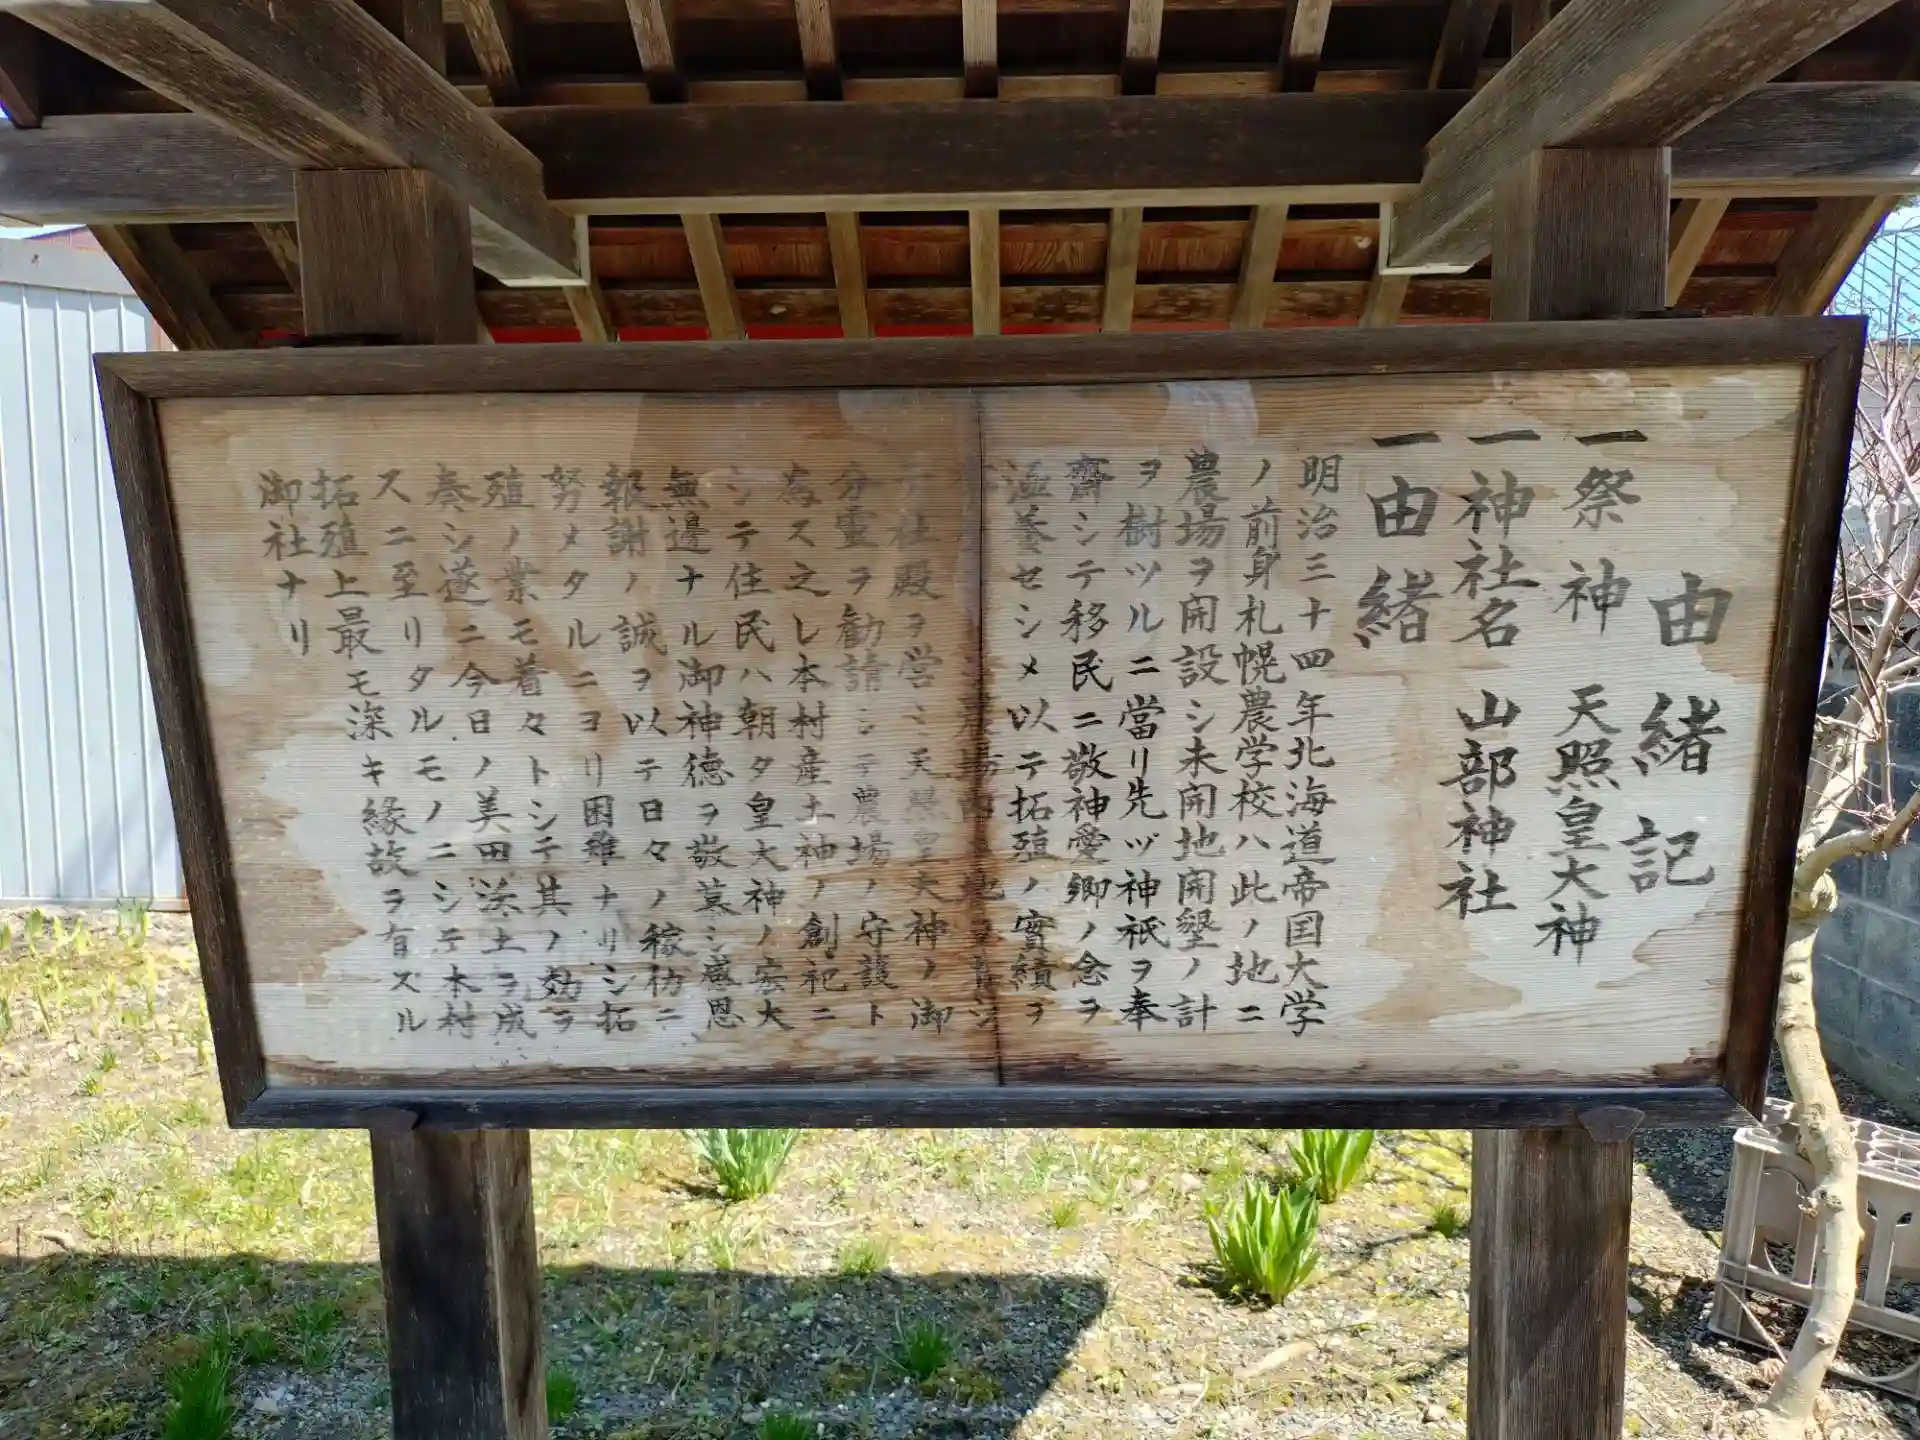 由緒記
一祭神 天照皇大神
一神社名 山部神社
一由緒
明治三十四年北海道帝国大学
ノ前身札幌農学校ハ此ノ地ニ
農場ヲ開設シ未開地開墾ノ計
ヲ樹ツルニ當リ先ヅ神祇ヲ奉
齋シテ移民ニ敬神愛郷ノ念ヲ
涵養セシメ以テ拓殖ノ實績ヲ
農場内 地
社殿ヲ営ミ天照皇大神ノ御
分霊ヲ勧請シテ農場ノ守護ト
為ス之レ本村産土神ノ創祀ニ
シテ住民ハ朝タ皇大神ノ宏大
無邊ナル御神徳ヲ敬慕シ感恩
報謝ノ誠ヲ以テ日々ノ稼枋ニ
努メタルニヨリ困難ナリシ拓
殖ノ業モ着々トシテ其ノ効ヲ
奏シ遂ニ今日ノ美田沃土ヲ成
スニ至リタルモノニシテ本村
拓殖上最モ深キ縁故ヲ有ズル
御社ナリ